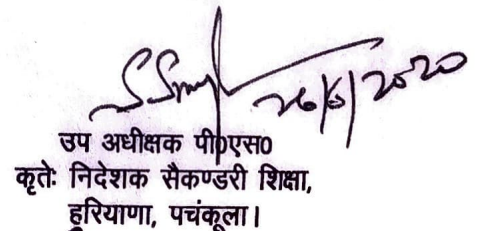 26/6/2020
उप अधीक्षक पी0एस0
कृतेः निदेशक सैकण्डरी शिक्षा,
हरियाणा, पचंकूला।